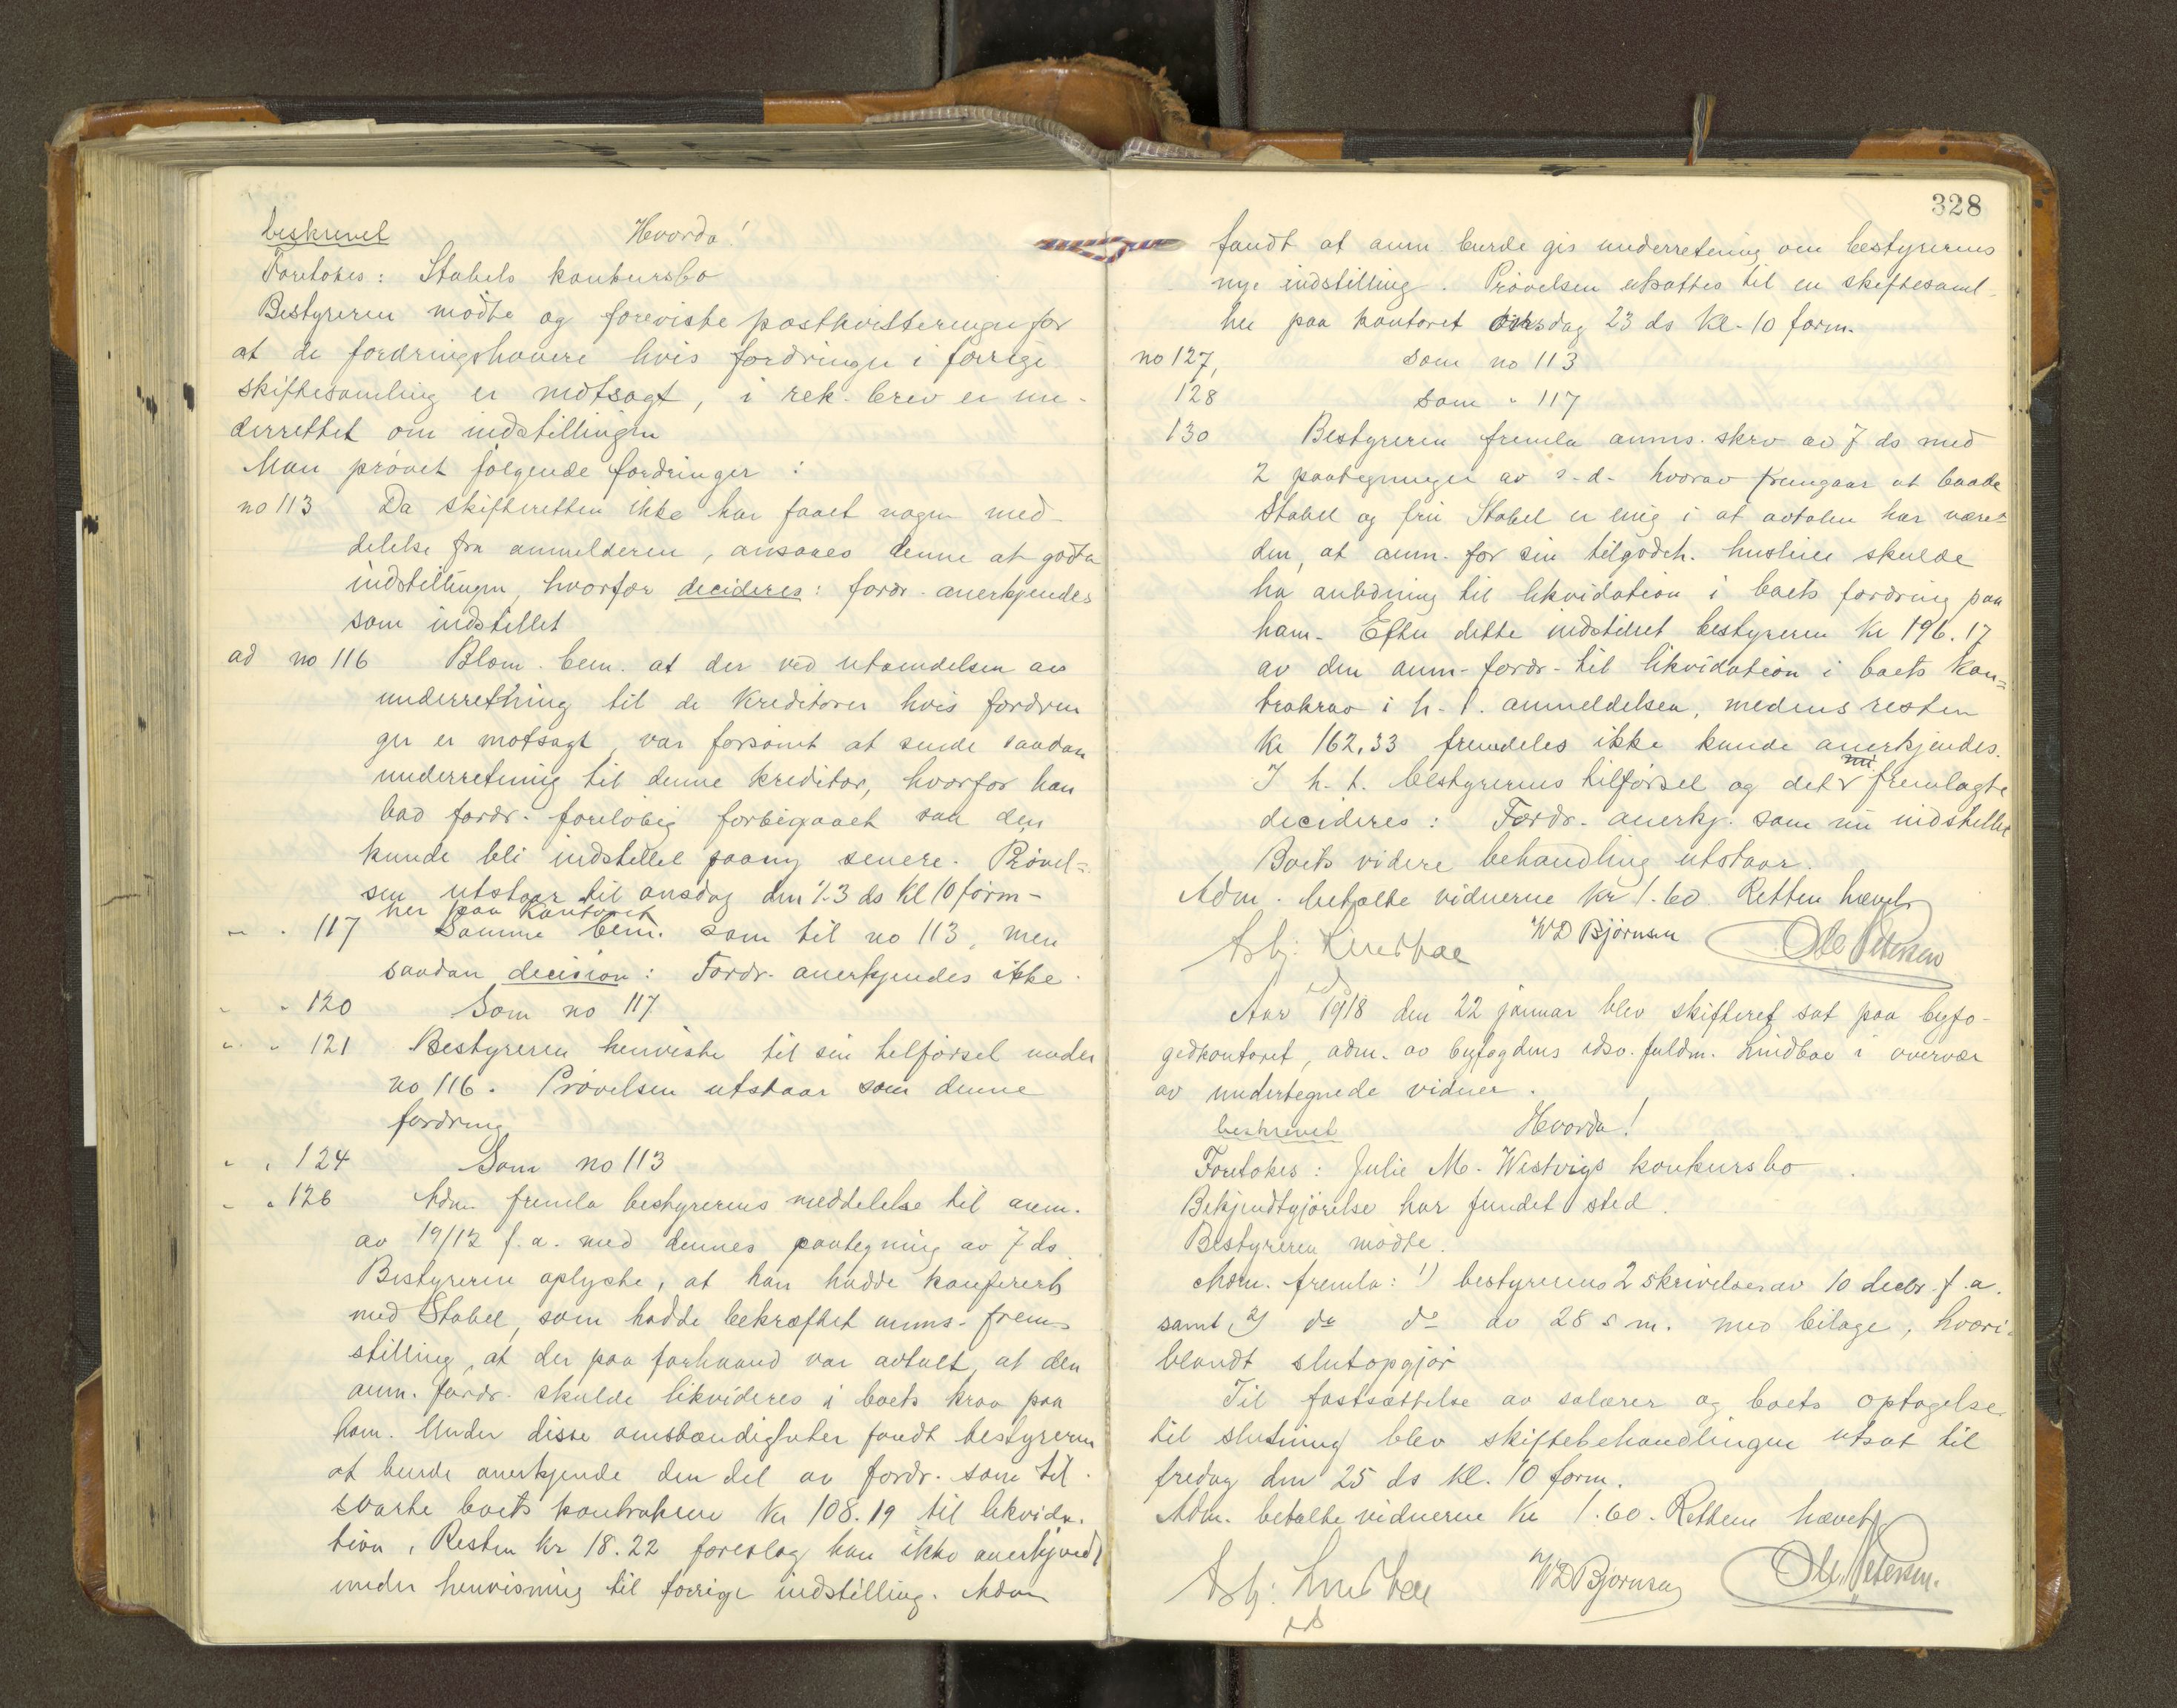 beskrevet Hvorda!
Foretokes: Stabels konkursbo
Bestyreren mødte og foreviste postkvitteringer for
at de fordringshavere hvis fordringer i forrige
skiftesamling er motsagt, i rek. brev er un-
derrettet om indstillingen
Man prøvet følgende fordringer:
no 113 Da skifteretten ikke har faaet nogen med-
delelse fra anmelderen, ansaaes denne at godta
indstillingen, hvorfor decideres: fordr. anerkjendes
som indstillet
ad no 116 bem. at der ved utsendelsen av
underretning til de kreditorer hvis fordrin
ger er motsagt, var forsømt at sende saadan
underretning til denne kreditor, hvorfor han
bad fordr. foreløbig forbigaaet saa den
kunde bli indstillet paany senere. Prøvel=
sen utstaar til onsdag den 23 ds kl 10 form-
her paa kontoret
" " 117 Samme bem. som til no 113, men
saadan decision: Fordr. anerkjendes ikke.
" " 120 Som no 117
" " 121 Bestyreren henviste til sin tilførsel under
no 116. Prøvelsen utstaar som denne
fordring
" " 124 Som no 113
" " 126 Adm. fremla bestyrerens meddelelse til anm.
av 19/12 f.a. med dennes paategning av 7 ds.
Bestyreren oplyste, at han hadde konferert
med Stabel, som hadde bekræftet anms. frem-
stilling, at der paa forhaand var avtalt, at den
anm. fordr. skulde likvideres i boets krav paa
ham. Under disse omstændigheter fandt bestyreren
at burde anerkjende den del av fordr. som til-
svarte boets kontrakrav kr 108.19 til likvida-
tion, Resten kr 18.22 foreslog han ikke anerkjendt
under henvisning til forrige indstilling. Adm
328
fandt at anm burde gis underretning om bestyrerens
nye indstilling. Prøvelsen utsattes til en skiftesaml-
her paa kontoret onsdag 23 ds kl. 10 form.
no 127, som no 113
128 som " 117
130 Bestyreren fremla anms. skrv av 7 ds med
2 paategninger av s.d. hvorav fremgaar at baade
Stabel og fru Stabel er enig i at avtalen har være=
den, at anm. for sin tilgodeh. husleie skulde
ha anledning til likvidation i boets fordring paa
ham. Efter dette indstillet bestyreren kr 196.17
av den anm. fordr. til likvidation i boets kon=
trakrav i h.t. anmeldelsen, medens resten
kr 162.33 fremdeles ikke kunde anerkjendes.
I h.t. bestyrerens tilførsel og det nu fremlagte
decideres: Fordr. anerkj. som nu indstillet
Boets videre behandling utstaar.
Adm. betalte vidnerne kr 1.60. Retten hævet
Asbj: Lindboe WD Bjørnsen Ole Petersen
Aar 1918 den 22 januar blev skifteret sat paa byfo-
gedkontoret, adm. av byfogdens edsv. fuldm. Lindboe i overvær
av undertegnede vidner.
beskrevet Hvorda!
Foretokes: Julie M. Westvigs konkursbo.
Bekjendtgjørelse har fundet sted.
Bestyreren mødte.
Adm. fremla: 1) bestyrerens 2 skrivelser av 10 decbr. f.a.
samt 2) do do av 28 s m. med bilage, hvori-
blandt slutopgjør
Til fastsættelse av salærer og boets optagelse
til slutning blev skiftebehandlingen utsat til
fredag den 25 ds kl. 10 form.
Adm. betalte vidnerne kr 1.60. Retten hævet
Asbj: Lindboe WD Bjørnsen Ole Petersen.